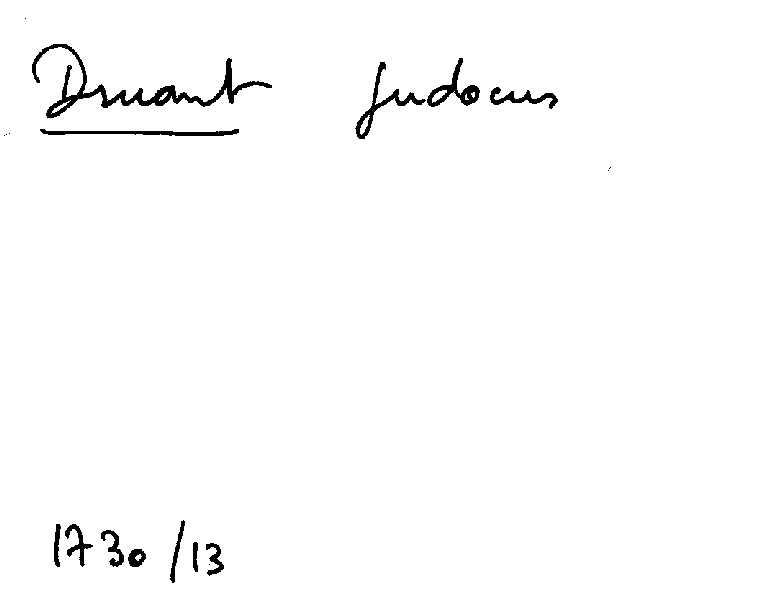 Druant Judocus
1730/13